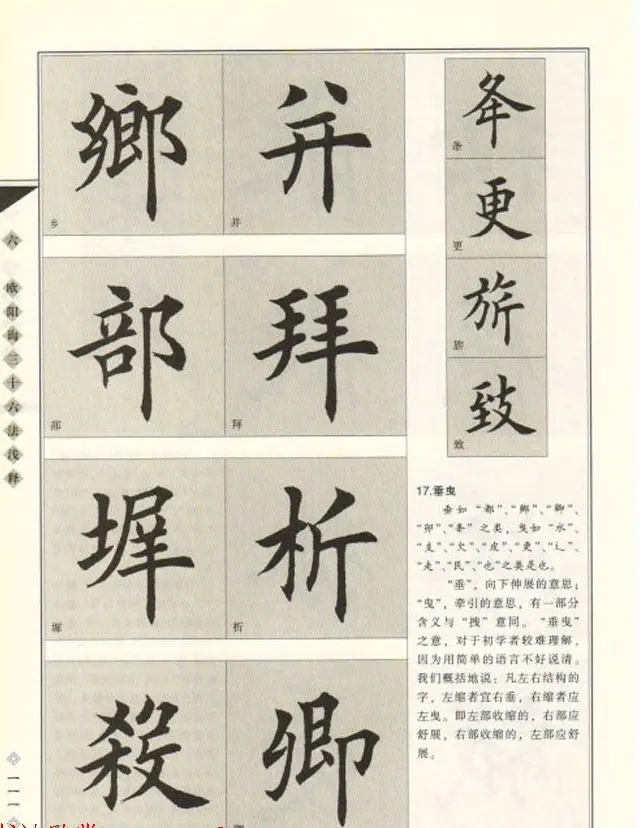 六 欧阳询三十六法浅释
鄉 并
乡 并
部 拜
部 拜
墀 析
墀 析
殺 卿
夅
条
更
更
旂
致
致
17.垂曳
垂如“都”、“鄉”、“卿”、
“卯”、“夆”之类，曳如“水”、
“支”、“欠”、“皮”、“更”、“辶”、
“走”、“民”、“也”之类是也。
“垂”，向下伸展的意思；
“曳”，牵引的意思，有一部分
含义与“拽”意同。“垂曳”
之意，对于初学者较难理解，
因为用简单的语言不好说清。
我们概括地说：凡左右结构的
字，左缩者宜右垂，右缩者应
左曳。即左部收缩的，右部应
舒展，右部收缩的，左部应舒
展。
一一一